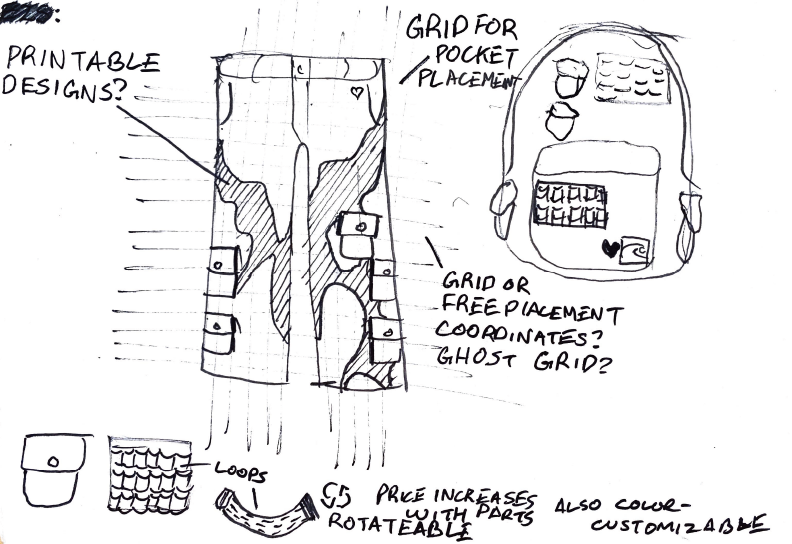 PRINTABLE
DESIGNS?
GRID FOR
POCKET
PLACEMENT
GRID OR
FREE PLACEMENT
COORDINATES?
GHOST GRID?
LOOPS
PRICE INCREASES
WITH PARTS
ROTATEABLE
ALSO COLOR-
CUSTOMIZABLE